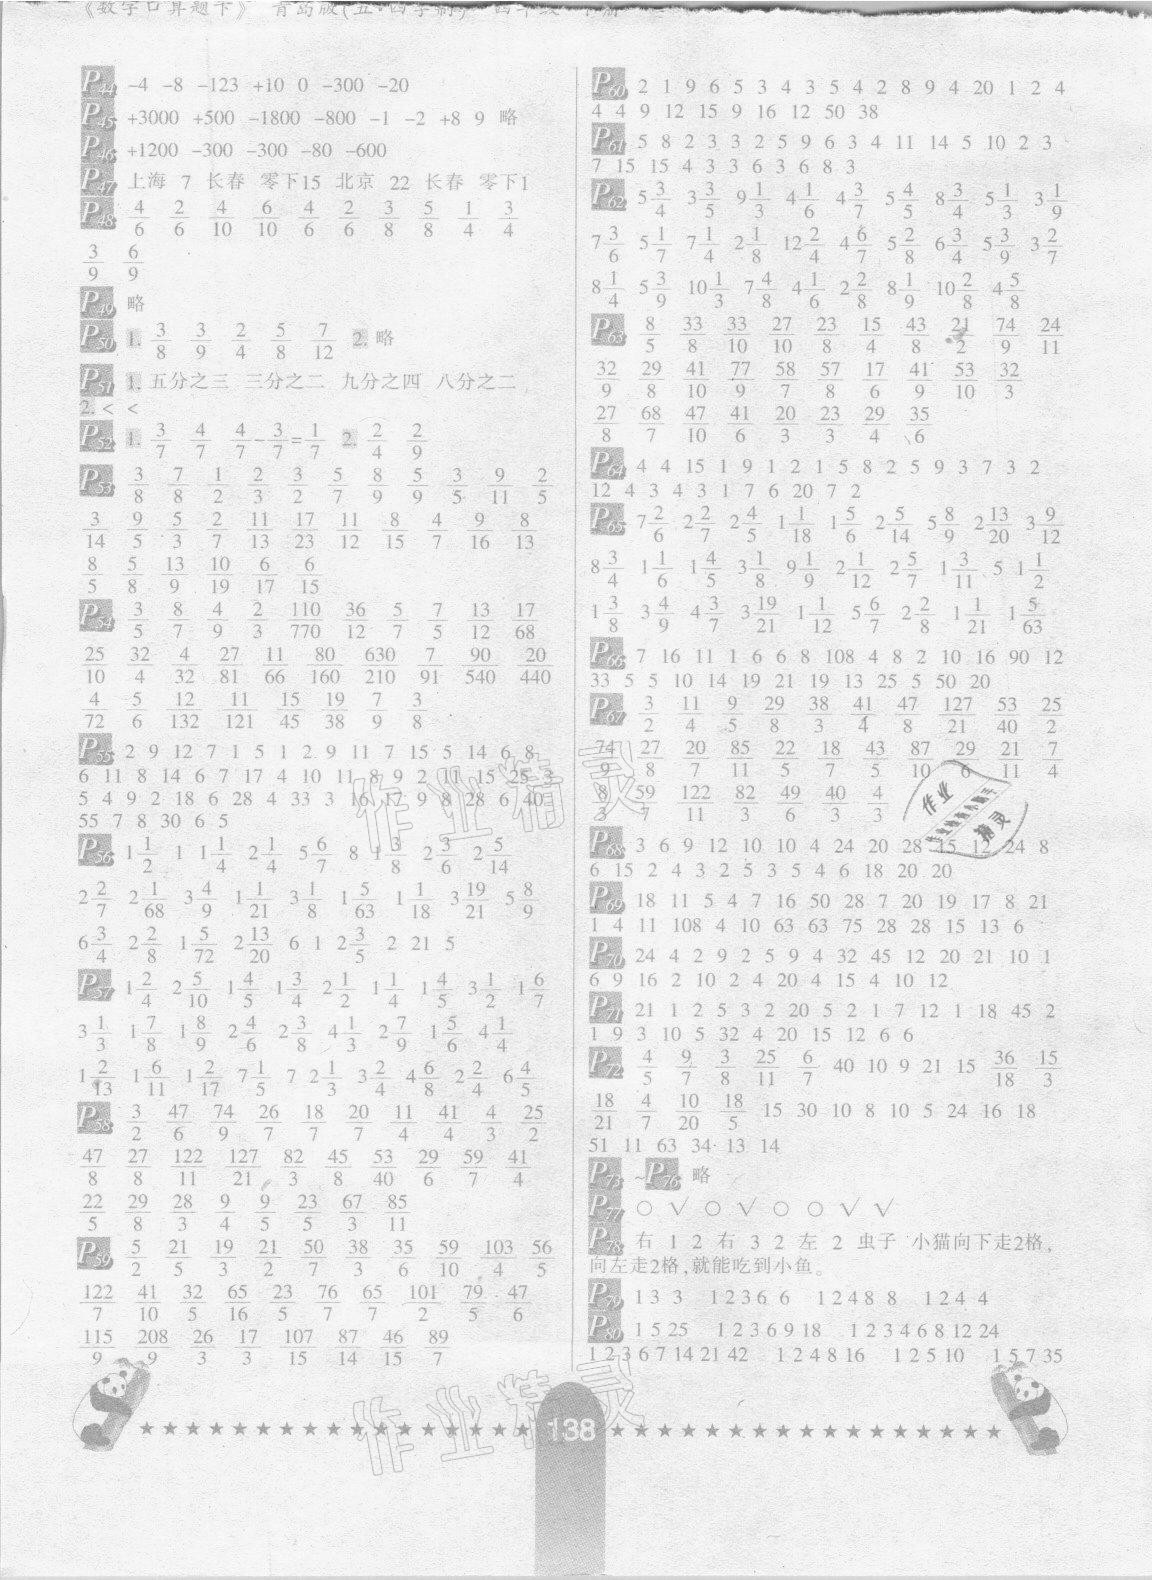 《数学口算题卡》 青岛版(五·四学制) 四年级 下册
P44 -4 -8 -123 +10 0 -300 -20
P45 +3000 +500 -1800 -800 -1 -2 +8 9 略
P46 +1200 -300 -300 -80 -600
P47 上海 7 长春 零下15 北京 22 长春 零下1
P48 4/6 2/6 4/10 6/10 4/6 2/6 3/8 5/8 1/4 3/4
3/9 6/9
P49 略
P50 1. 3/8 3/9 2/4 5/8 7/12 2. 略
P51 1. 五分之三 三分之二 九分之四 八分之二
2. < <
P52 1. 3/7 4/7 4/7-3/7=1/7 2. 2/4 2/9
P53 3/8 7/8 1/2 2/3 3/2 5/7 8/9 5/9 3/5 9/11 2/5
3/14 9/5 5/3 2/7 11/13 17/23 11/12 8/15 4/7 9/16 8/13
8/5 5/8 13/9 10/19 6/17 6/15
P54 3/5 8/7 4/9 2/3 110/770 36/12 5/7 7/5 13/12 17/68
25/10 32/4 4/32 27/81 11/66 80/160 630/210 7/91 90/540 20/440
4/72 5/6 12/132 11/121 15/45 19/38 7/9 3/8
P55 2 9 12 7 1 5 1 2 9 11 7 15 5 14 6 8
6 11 8 14 6 7 17 4 10 11 8 9 2 11 15 25 3
5 4 9 2 18 6 28 4 33 3 16 17 9 8 28 6 40
55 7 8 30 6 5
P56 1 1/2 1 1 1/4 2 1/4 5 6/7 8 1 3/8 2 3/6 2 5/14
2 2/7 2 1/68 3 4/9 1 1/21 3 1/8 1 5/63 1 1/18 3 19/21 5 8/9
6 3/4 2 2/8 1 5/72 2 13/20 6 1 2 3/5 2 21 5
P57 1 2/4 2 5/10 1 4/5 1 3/4 2 1/2 1 1/4 1 4/5 3 1/2 1 6/7
3 1/3 1 7/8 1 8/9 2 4/6 2 3/8 4 1/3 2 7/9 1 5/6 4 1/4
1 2/13 1 6/11 1 2/17 7 1/5 7 2 1/3 3 2/4 4 6/8 2 2/4 6 4/5
P58 3/2 47/6 74/9 26/7 18/7 20/7 11/4 41/4 4/3 25/2
47/8 27/8 122/11 127/21 82/3 45/8 53/40 29/6 59/7 41/4
22/5 29/8 28/3 9/4 9/5 23/5 67/3 85/11
P59 5/2 21/5 19/3 21/2 50/7 38/3 35/6 59/10 103/4 56/5
122/7 41/10 32/5 65/16 23/5 76/7 65/7 101/2 79/5 47/6
115/9 208/9 26/3 17/3 107/15 87/14 46/15 89/7
P60 2 1 9 6 5 3 4 3 5 4 2 8 9 4 20 1 2 4
4 4 9 12 15 9 16 12 50 38
P61 5 8 2 3 3 2 5 9 6 3 4 11 14 5 10 2 3
7 15 15 4 3 3 6 3 6 8 3
P62 5 3/4 3 3/5 9 1/3 4 1/6 4 3/7 5 4/5 8 3/4 5 1/3 3 1/9
7 3/6 5 1/7 7 1/4 2 1/8 12 2/4 4 6/7 5 2/8 6 3/4 5 3/9 3 2/7
8 1/4 5 3/9 10 1/3 7 4/8 4 1/6 2 2/8 8 1/9 10 2/8 4 5/8
P63 8/5 33/8 33/10 27/10 23/8 15/4 43/8 21/2 74/9 24/11
32/9 29/8 41/10 77/9 58/7 57/8 17/6 41/9 53/10 32/3
27/8 68/7 47/10 41/6 20/3 23/3 29/4 35/6
P64 4 4 15 1 9 1 2 1 5 8 2 5 9 3 7 3 2
12 4 3 4 3 1 7 6 20 7 2
P65 7 2/6 2 2/7 2 4/5 1 1/18 1 5/6 2 5/14 5 8/9 2 13/20 3 9/12
8 3/4 1 1/6 1 4/5 3 1/8 9 1/9 2 1/12 2 5/7 1 3/11 5 1 1/2
1 3/8 3 4/9 4 3/7 3 19/21 1 1/12 5 6/7 2 2/8 1 1/21 1 5/63
P66 7 16 11 1 6 6 8 108 4 8 2 10 16 90 12
33 5 5 10 14 19 21 19 13 25 5 50 20
P67 3/2 11/4 9/5 29/8 38/3 41/4 47/8 127/21 53/40 25/2
74/9 27/8 20/7 85/11 22/5 18/7 43/5 87/10 29/6 21/11 7/4
8/3 59/7 122/11 82/3 49/6 40/3 4/3
P68 3 6 9 12 10 10 4 24 20 28 15 12 24 8
6 15 2 4 3 2 5 3 5 4 6 18 20 20
P69 18 11 5 4 7 16 50 28 7 20 19 17 8 21
1 4 11 108 4 10 63 63 75 28 28 15 13 6
P70 24 4 2 9 2 5 9 4 32 45 12 20 21 10 1
6 9 16 2 10 2 4 20 4 15 4 10 12
P71 21 1 2 5 3 2 20 5 2 1 7 12 1 18 45 2
1 9 3 10 5 32 4 20 15 12 6 6
P72 4/5 9/7 3/8 25/11 6/7 40 10 9 21 15 36/18 15/3
18/21 4/7 10/20 18/5 15 30 10 8 10 5 24 16 18
51 11 63 34 13 14
P73 ~P76 略
P77 ○ √ ○ √ ○ ○ √ √
P78 右 1 2 右 3 2 左 2 虫子 小猫向下走2格,
向左走2格,就能吃到小鱼。
P79 1 3 3 1 2 3 6 6 1 2 4 8 8 1 2 4 4
P80 1 5 25 1 2 3 6 9 18 1 2 3 4 6 8 12 24
1 2 3 6 7 14 21 42 1 2 4 8 16 1 2 5 10 1 5 7 35
138
作业精灵
作业精灵
作业
精灵